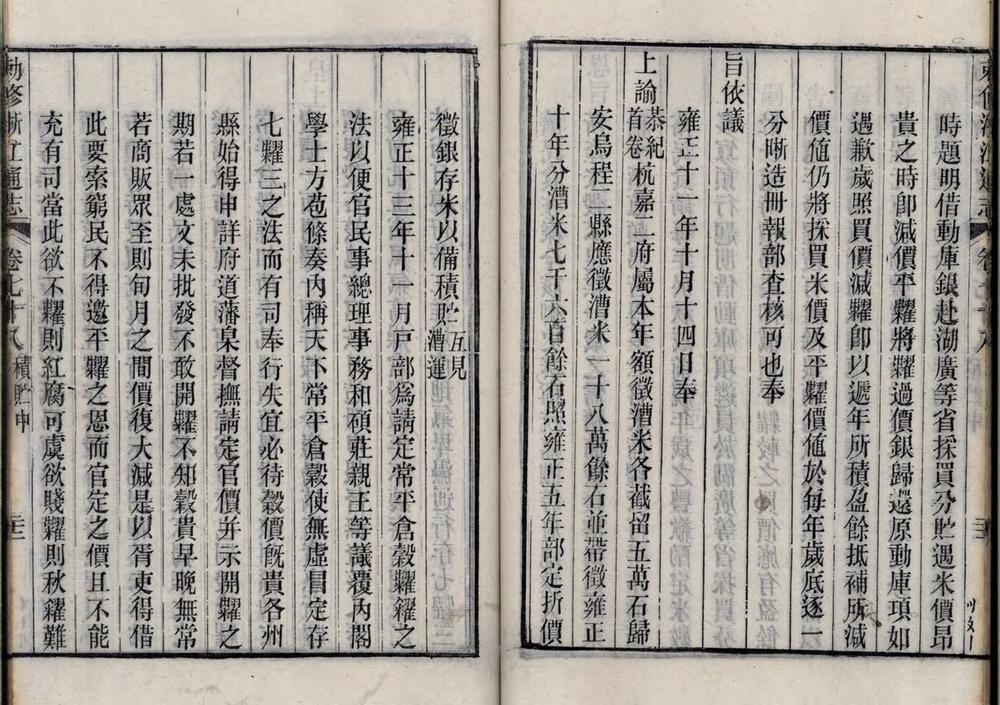 時題明借動庫銀赴湖廣等省採買分貯遇米價昂
貴之時卽減價平糶將糶過價銀歸還原動庫項如
遇歉歲照買價減糶卽以遞年所積盈餘抵補所減
價值仍將採買米價及平糶價值於每年歲底逐一
分晰造冊報部查核可也奉
旨依議
雍正十一年十月十四日奉
上諭恭紀首卷杭嘉二府屬本年額徵漕米各截留五萬石歸
安烏程二縣應徵漕米一十八萬餘石並帶徵雍正
十年分漕米七千六百餘石照雍正五年部定折價
徵銀存米以備積貯互見漕運
雍正十三年十一月戶部爲請定常平倉穀糶糴之
法以便官民事總理事務和碩莊親王等議覆內閣
學士方苞條奏內稱天下常平倉穀使無虛冒定存
七糶三之法而有司奉行失宜必待穀價旣貴各州
縣始得申詳府道藩臬督撫請定官價并示開糶之
期若一處文未批發不敢開糶不知穀貴早晚無常
若商販眾至則旬月之間價復大減是以胥吏得借
此要索窮民不得邀平糶之恩而官定之價且不能
充有司當此欲不糶則紅腐可虞欲賤糶則秋糴難
勅修浙江通志 卷七十八 積貯中